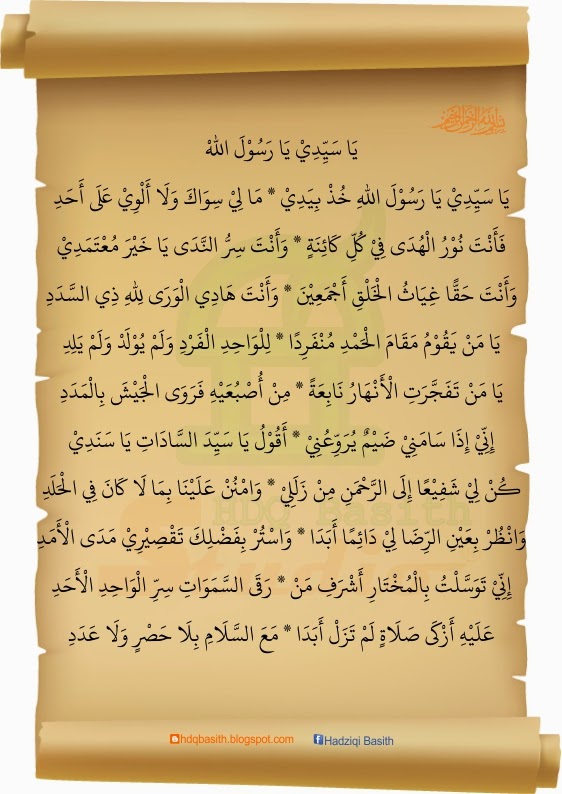 بسم الله الرحمن الرحيم
يَا سَيِّدِيْ يَا رَسُوْلَ اللهْ
يَا سَيِّدِيْ يَا رَسُوْلَ اللهِ خُذْ بِيَدِيْ * مَا لِيْ سِوَاكَ وَلَا أَلْوِيْ عَلَى أَحَدِ
فَأَنْتَ نُوْرُ الْهُدَى فِيْ كُلِّ كَائِنَةٍ * وَأَنْتَ سِرُّ النَّدَى يَا خَيْرَ مُعْتَمَدِيْ
وَأَنْتَ حَقًّا غِيَاثُ الْخَلْقِ أَجْمَعِيْنَ * وَأَنْتَ هَادِي الْوَرَى لِلهِ ذِي السَّدَدِ
يَا مَنْ يَقُوْمُ مَقَامَ الْحَمْدِ مُنْفَرِدًا * لِلْوَاحِدِ الْفَرْدِ وَلَمْ يُوْلَدْ وَلَمْ يَلِدِ
يَا مَنْ تَفَجَّرَتِ الْأَنْهَارُ نَابِعَةً * مِنْ أُصْبُعَيْهِ فَرَوَى الْجَيْشَ بِالْمَدَدِ
إِنِّيْ إِذَا سَامَنِيْ ضَيْمٌ يُرَوِّعُنِيْ * أَقُوْلُ يَا سَيِّدَ السَّادَاتِ يَا سَنَدِيْ
كُنْ لِيْ شَفِيْعًا إِلَى الرَّحْمَنِ مِنْ زَلَلِيْ * وَامْنُنْ عَلَيْنَا بِمَا لَا كَانَ فِي الْخَلَدِ
وَانْظُرْ بِعَيْنِ الرِّضَا لِيْ دَائِمًا أَبَدَا * وَاسْتُرْ بِفَضْلِكَ تَقْصِيْرِيْ مَدَى الْأَمَدِ
إِنِّيْ تَوَسَّلْتُ بِالْمُخْتَارِ أَشْرَفِ مَنْ * رَقَى السَّمَوَاتِ سِرِّ الْوَاحِدِ الْأَحَدِ
عَلَيْهِ أَزْكَى صَلَاةٍ لَمْ تَزَلْ أَبَدَا * مَعَ السَّلَامِ بِلَا حَصْرٍ وَلَا عَدَدِ
HDQ Basith
Studio
hdqbasith.blogspot.com Hadziqi Basith